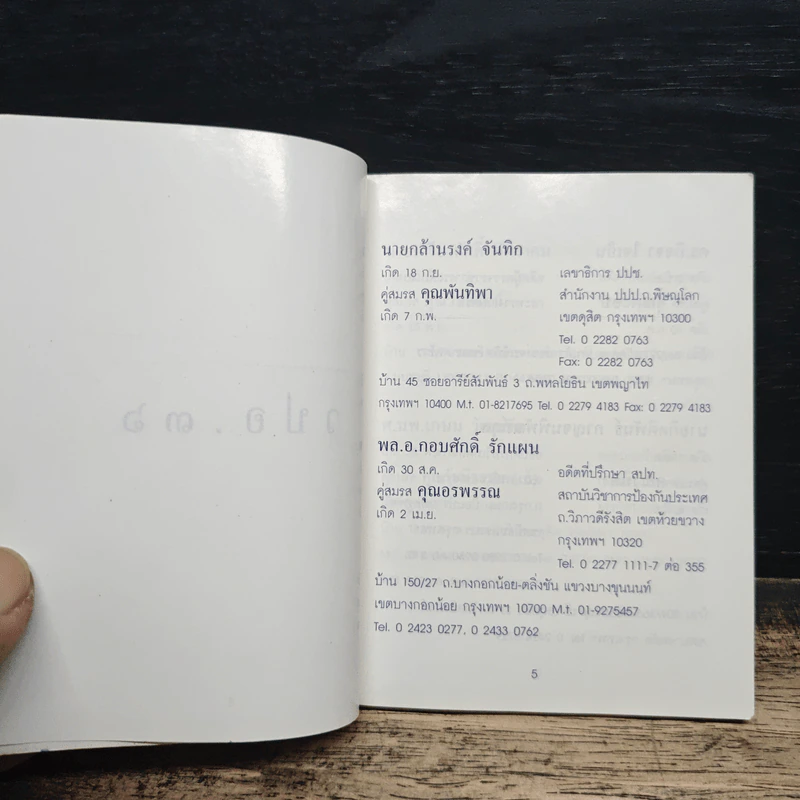 นายกล้านรงค์ จันทิก
เกิด 18 ก.ย.
เลขาธิการ ปปช.
คู่สมรส คุณพันทิพา
สำนักงาน ปปป.ถ.พิษณุโลก
เกิด 7 ก.พ.
เขตดุสิต กรุงเทพฯ 10300
Tel. 0 2282 0763
Fax: 0 2282 0763
บ้าน 45 ซอยอารีย์สัมพันธ์ 3 ถ.พหลโยธิน เขตพญาไท
กรุงเทพฯ 10400 M.t. 01-8217695 Tel. 0 2279 4183 Fax: 0 2279 4183
พล.อ.กอบศักดิ์ รักแผน
เกิด 30 ส.ค.
อดีตที่ปรึกษา สปท.
คู่สมรส คุณอรพรรณ
สถาบันวิชาการป้องกันประเทศ
เกิด 2 เม.ย.
ถ.วิภาวดีรังสิต เขตห้วยขวาง
กรุงเทพฯ 10320
Tel. 0 2277 1111-7 ต่อ 355
บ้าน 150/27 ถ.บางกอกน้อย-ตลิ่งชัน แขวงบางขุนนนท์
เขตบางกอกน้อย กรุงเทพฯ 10700 M.t. 01-9275457
Tel. 0 2423 0277, 0 2433 0762
5